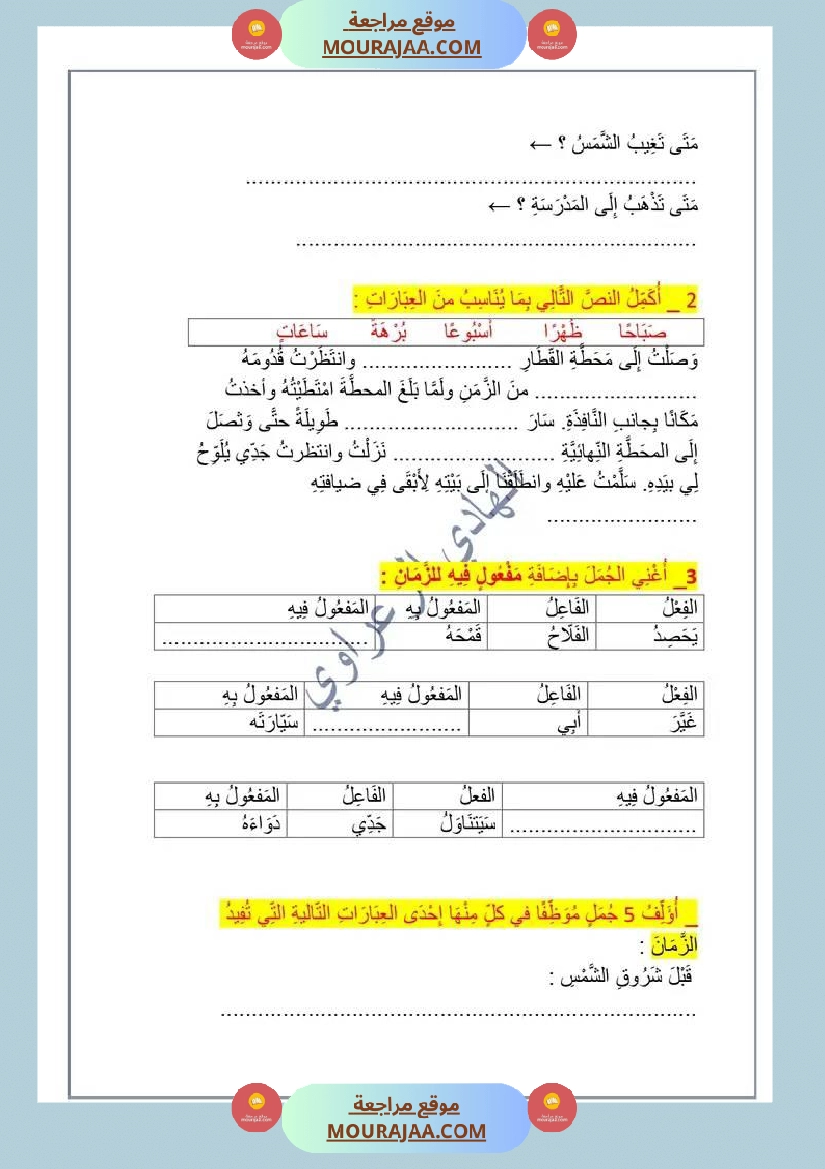 موقع مراجعة
MOURAJAA.COM
مَتَى تَغِيبُ الشَّمَسُ ؟ ←
..........................................................................
مَتَى تَذْهَبُ إِلَى المَدْرَسَةِ ؟ ←
.................................................................
2 _ أُكَمِّلُ النصَّ التَّالِي بِمَا يُنَاسِبُ منَ العِبَارَاتِ :
صَبَاحًا ظُهْرًا أُسْبُوعًا بُرْهَةً سَاعَاتٍ
وَصَلْتُ إِلَى مَحَطَّةِ القَطَارِ ........................ وانتَظَرْتُ قُدُومَهُ
.......................... منَ الزَّمَنِ ولَمَّا بَلَغَ المحطَّةَ امْتَطَيْتُهُ وأخذتُ
مَكَانًا بِجانبِ النَّافِذَةِ. سَارَ ............................ طَوِيلَةً حتَّى وَتْصَلَ
إِلَى المحَطَّةِ النِّهائِيَّةِ .......................... نَزَلْتُ وانتظرتُ جَدِّي يُلَوِّحُ
لِي بيَدِهِ. سَلَّمْتُ عَلَيْهِ وانطَلَقْنَا إلَى بَيْتِهِ لِأَبْقَى فِي ضيافتِهِ
........................
3_ أُغْنِي الجُمَلَ بِإِضَافَةِ مَفْعُولٍ فِيهِ للزَّمَانِ :
الفِعْلُ الفَاعِلُ المَفْعُولُ بِهِ المَفعُولُ فِيهِ
يَحَصِدُ الفَلّاحُ قَمْحَهُ .................................
الفِعْلُ الفَاعِلُ المَفعُولُ فِيهِ المَفعُولُ بِهِ
غَيَّرَ أَبِي ........................ سَيّارَتَه
المَفعُولُ فِيهِ الفعلُ الفَاعِلُ المَفعُولُ بِهِ
.............................. سَيَتنَاوَلُ جَدِّي دَوَاءَهُ
_ أُوَلِّفُ 5 جُمَلٍ مُوَظِّفًا في كلٍّ مِنْهَا إِحْدَى العِبَارَاتِ التّاليةِ التِّي تُفِيدُ
الزَّمَانَ :
قَبْلَ شَرُوقِ الشَّمْسِ :
..............................................................................
موقع مراجعة
MOURAJAA.COM